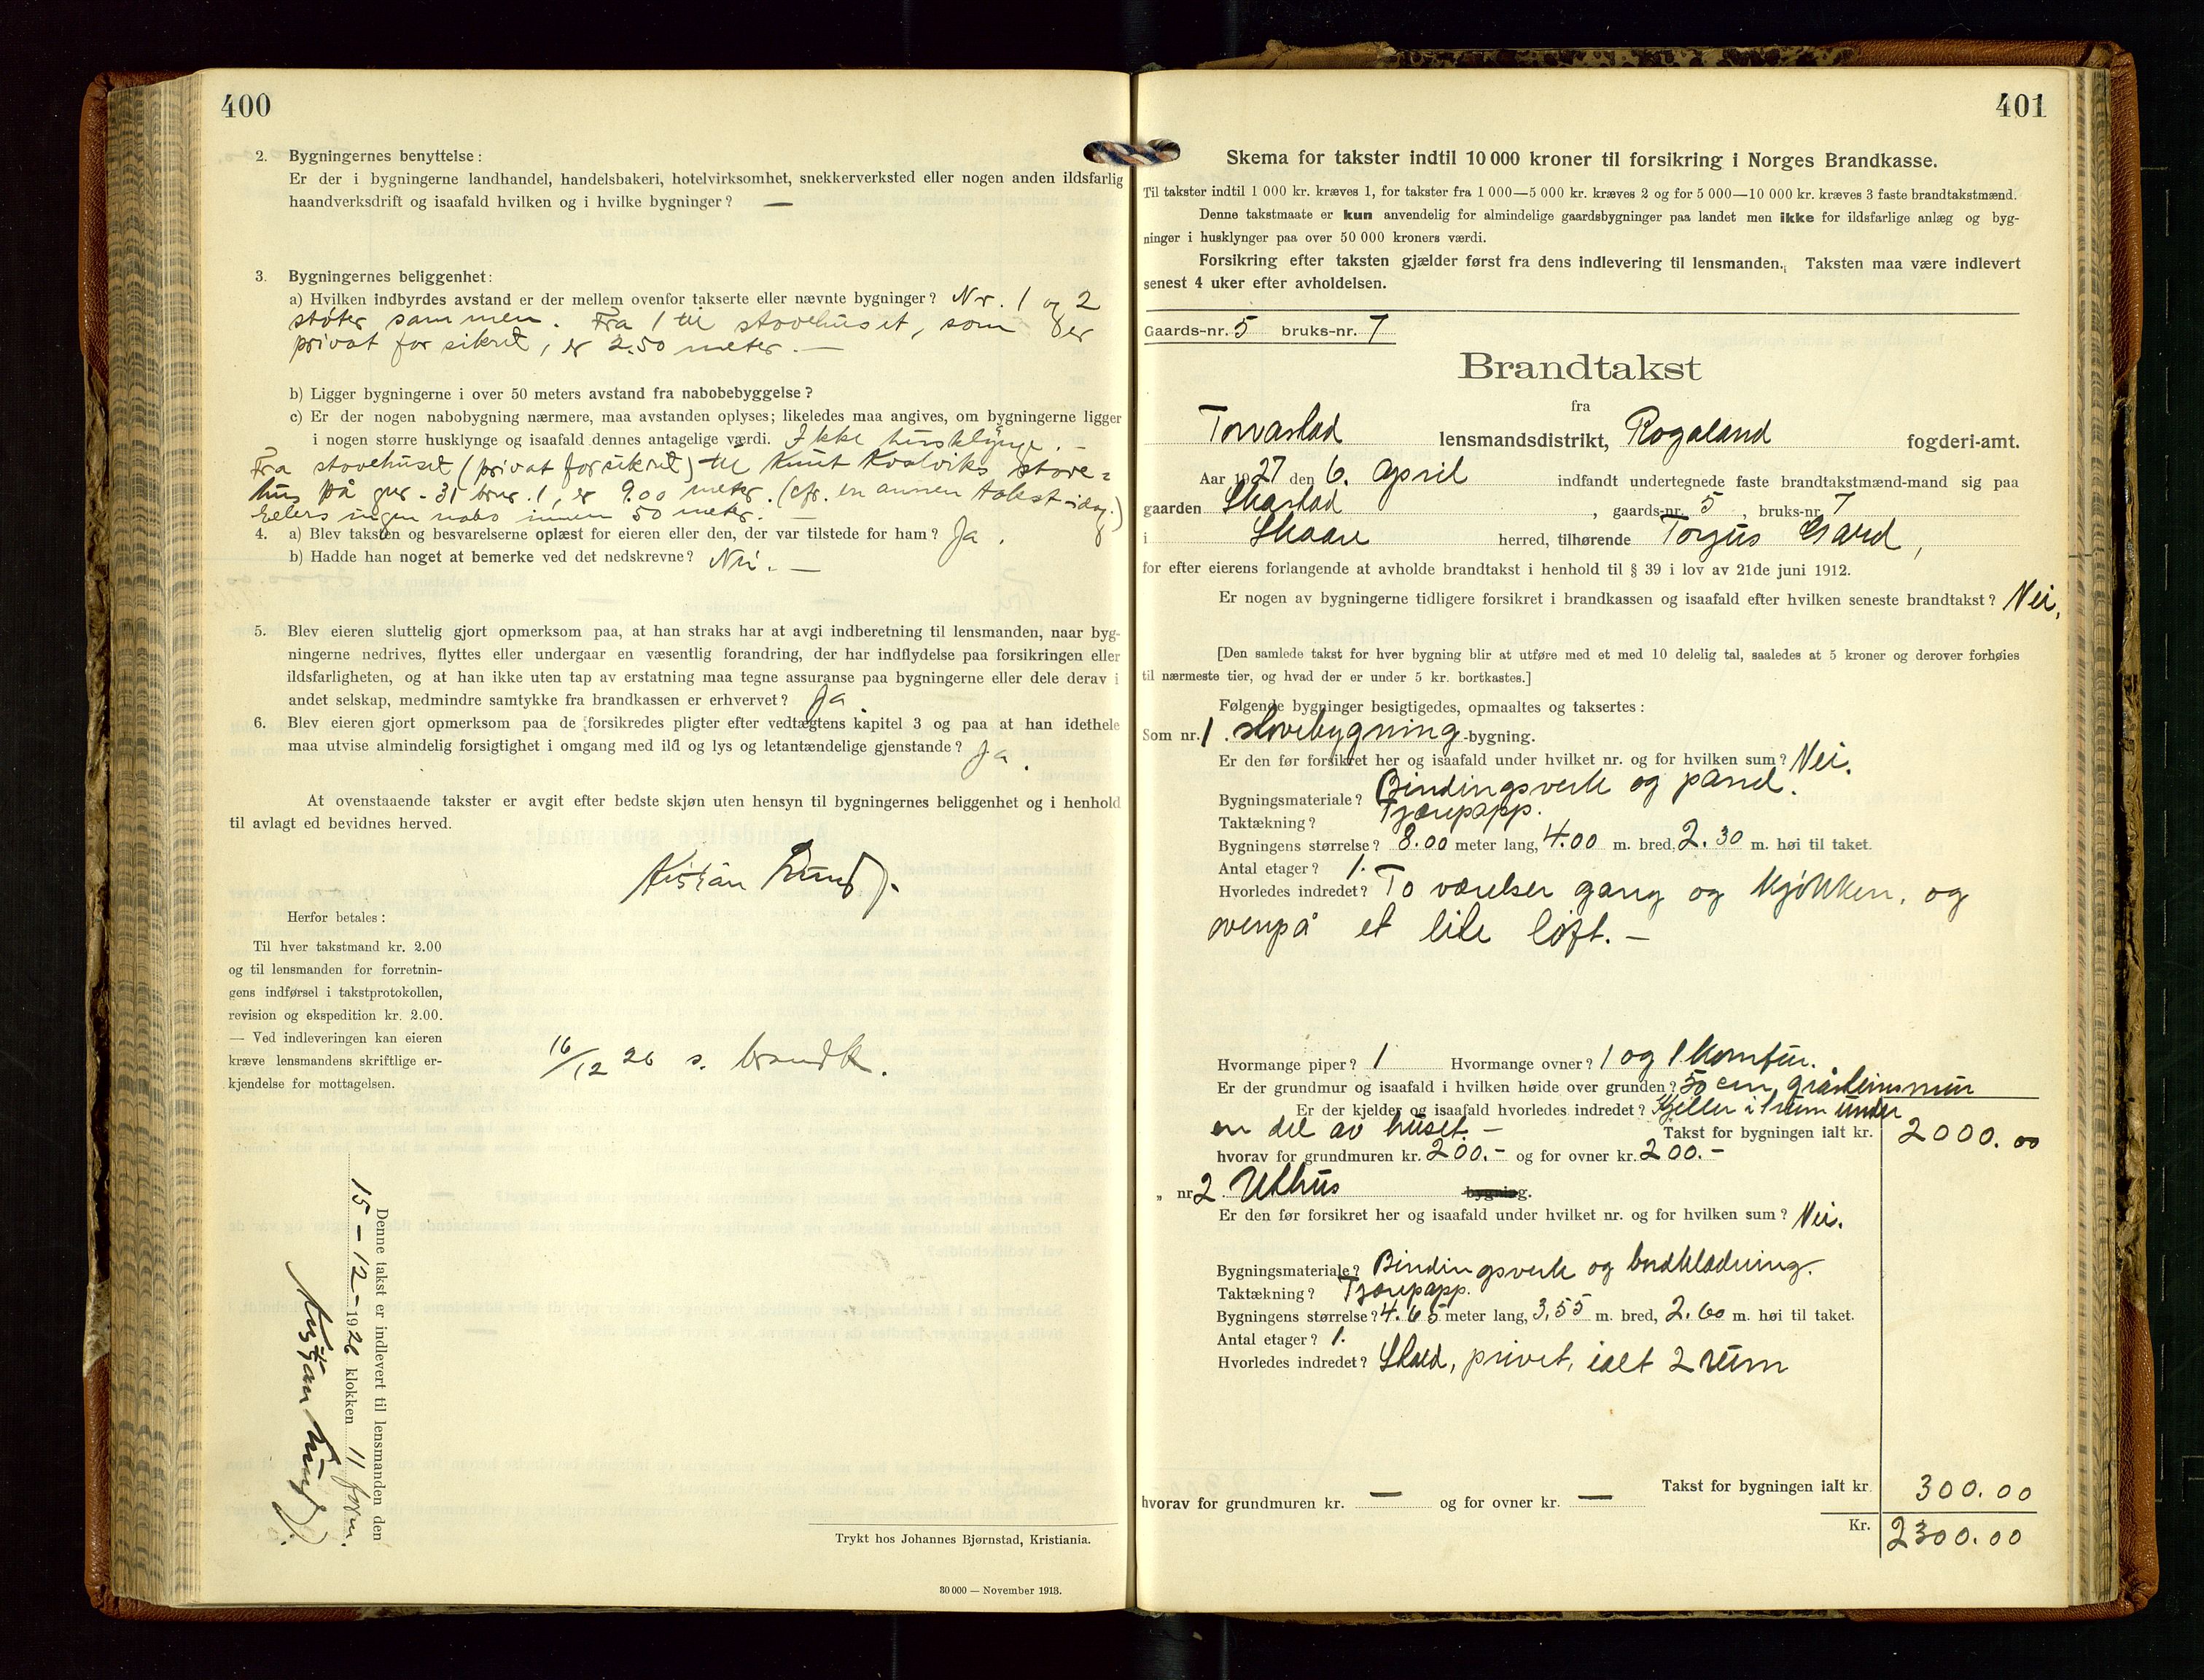 400
2. Bygningernes benyttelse:
Er der i bygningerne landhandel, handelsbakeri, hotelvirksomhet, snekkerverksted eller nogen anden ildsfarlig
haandverksdrift og isaafald hvilken og i hvilke bygninger? —
3. Bygningernes beliggenhet:
a) Hvilken indbyrdes avstand er der mellem ovenfor takserte eller nævnte bygninger? Nr. 1 og 2
støter sammen. Fra 1 til stovehuset, som er
privat forsikret, er 2.50 meter. —
b) Ligger bygningerne i over 50 meters avstand fra nabobebyggelse?
c) Er der nogen nabobygning nærmere, maa avstanden oplyses; likeledes maa angives, om bygningerne ligger
i nogen større husklynge og isaafald dennes antagelige værdi. Ikke husklynge.
Fra stovehuset (privat forsikret) til Knut Kvalviks stove-
hus på gnr. 31 brnr. 1, er 9.00 meter. (cfr. en annen takst idag.)
Ellers ingen nabo innen 50 meter. —
4. a) Blev taksten og besvarelserne oplæst for eieren eller den, der var tilstede for ham? Ja.
b) Hadde han noget at bemerke ved det nedskrevne? Nei. —
5. Blev eieren sluttelig gjort opmerksom paa, at han straks har at avgi indberetning til lensmanden, naar byg-
ningerne nedrives, flyttes eller undergaar en væsentlig forandring, der har indflydelse paa forsikringen eller
ildsfarligheten, og at han ikke uten tap av erstatning maa tegne assuranse paa bygningerne eller dele derav i
andet selskap, medmindre samtykke fra brandkassen er erhvervet? Ja.
6. Blev eieren gjort opmerksom paa de forsikredes pligter efter vedtægtens kapitel 3 og paa at han idethele
maa utvise almindelig forsigtighet i omgang med ild og lys og letantændelige gjenstande? Ja.
At ovenstaaende takster er avgit efter bedste skjøn uten hensyn til bygningernes beliggenhet og i henhold
til avlagt ed bevidnes herved.
Kristian Lund
Herfor betales:
Til hver takstmand kr. 2.00
og til lensmanden for forretnin-
gens indførsel i takstprotokollen,
revision og ekspedition kr. 2.00.
— Ved indleveringen kan eieren
kræve lensmandens skriftlige er-
kjendelse for mottagelsen.
16/12 26 s. brandk.
Denne takst er indlevert til lensmanden den
15-12-1926 klokken 11 form.
Kristian Lund
Trykt hos Johannes Bjørnstad, Kristiania.
30 000 — November 1913.
401
Skema for takster indtil 10 000 kroner til forsikring i Norges Brandkasse.
Til takster indtil 1 000 kr. kræves 1, for takster fra 1 000—5 000 kr. kræves 2 og for 5 000—10 000 kr. kræves 3 faste brandtakstmænd.
Denne takstmaate er kun anvendelig for almindelige gaardsbygninger paa landet men ikke for ildsfarlige anlæg og byg-
ninger i husklynger paa over 50 000 kroners værdi.
Forsikring efter taksten gjælder først fra dens indlevering til lensmanden. Taksten maa være indlevert
senest 4 uker efter avholdelsen.
Gaards-nr. 5 bruks-nr. 7
Brandtakst
fra
Torvastad lensmandsdistrikt, Rogaland fogderi-amt.
Aar 1927 den 6. April indfandt undertegnede faste brandtakstmænd-mand sig paa
gaarden Skarstad, gaards-nr. 5, bruks-nr. 7
i Skaare herred, tilhørende Torjus Gard,
for efter eierens forlangende at avholde brandtakst i henhold til § 39 i lov av 21de juni 1912.
Er nogen av bygningerne tidligere forsikret i brandkassen og isaafald efter hvilken seneste brandtakst? Nei.
[Den samlede takst for hver bygning blir at utføre med et med 10 delelig tal, saaledes at 5 kroner og derover forhøies
til nærmeste tier, og hvad der er under 5 kr. bortkastes.]
Følgende bygninger besigtigedes, opmaaltes og taksertes:
Som nr. 1. stovebygning-bygning.
Er den før forsikret her og isaafald under hvilket nr. og for hvilken sum? Nei.
Bygningsmateriale? Bindingsverk og panel.
Taktækning? Tjærepapp.
Bygningens størrelse? 8.00 meter lang, 4.00 m. bred, 2.30 m. høi til taket.
Antal etager? 1.
Hvorledes indredet? To værelser gang og kjøkken, og
ovenpå et lite loft. —
Hvormange piper? 1 Hvormange ovner? 1 og 1 komfur.
Er der grundmur og isaafald i hvilken høide over grunden? 50 cm gråsteinsmur
Er der kjelder og isaafald hvorledes indredet? Kjeller i 1 rum under
en del av huset. — Takst for bygningen ialt kr. 2000.00
hvorav for grundmuren kr. 200.- og for ovner kr. 200.-
„ nr 2 Uthus bygning.
Er den før forsikret her og isaafald under hvilket nr. og for hvilken sum? Nei.
Bygningsmateriale? Bindingsverk og bordklædning.
Taktækning? Tjærepapp.
Bygningens størrelse? 4.65 meter lang, 3,55 m. bred, 2.60 m. høi til taket.
Antal etager? 1.
Hvorledes indredet? Skaal, privet, ialt 2 rum
Takst for bygningen ialt kr. 300.00
hvorav for grundmuren kr. — og for ovner kr. —
Kr. 2300.00